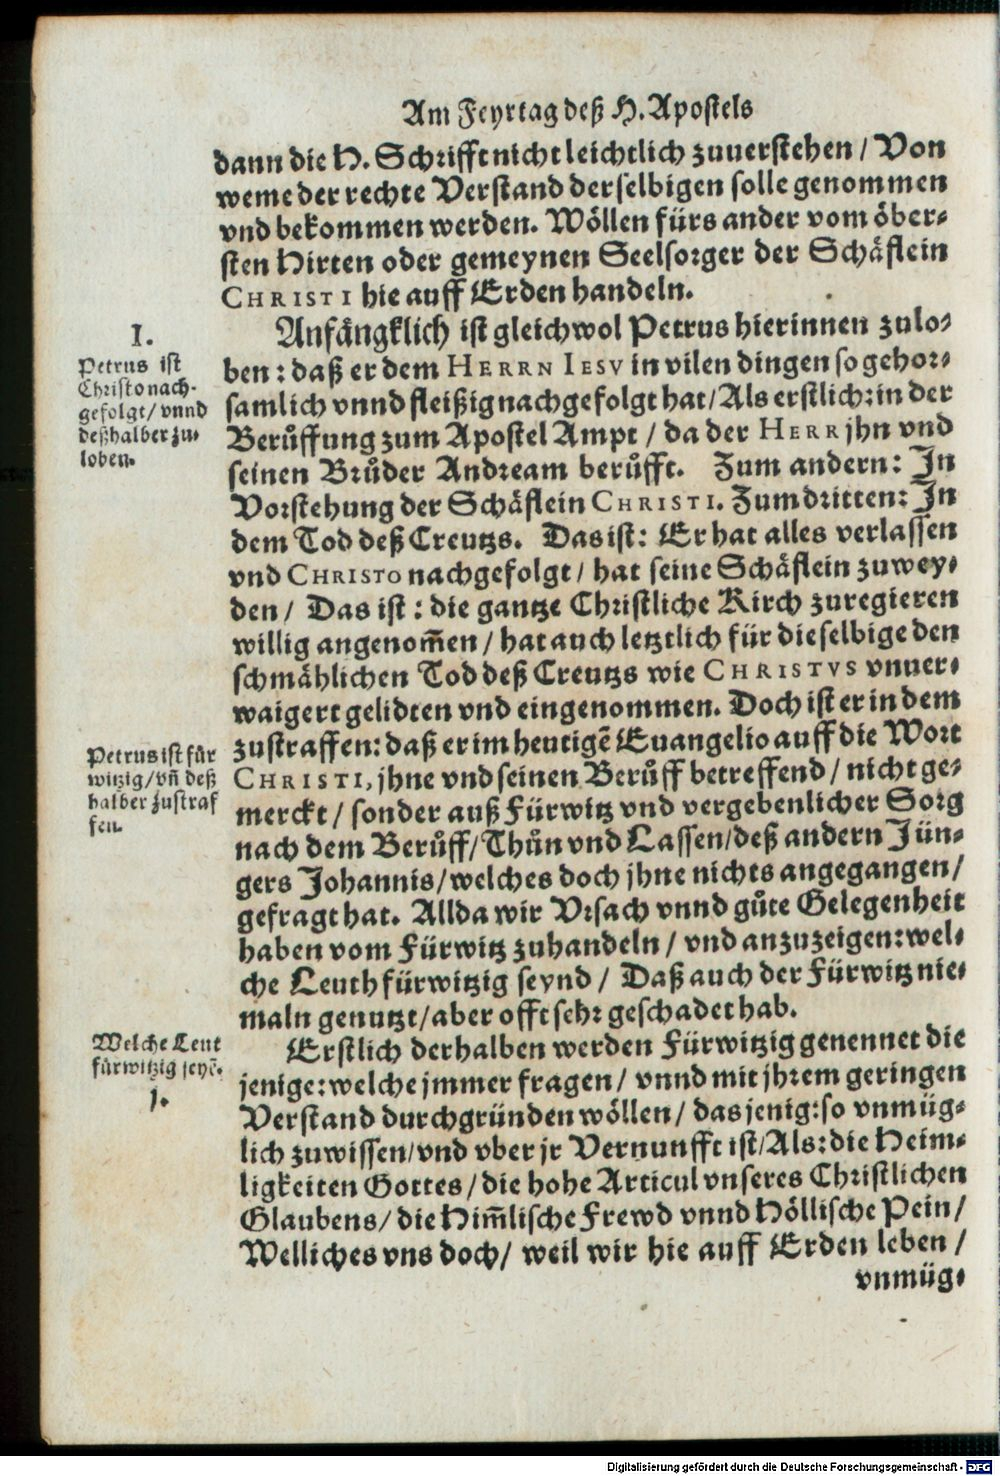 Am Feyrtag deß H. Apostels
dann die H. Schrifft nicht leichtlich zuuerstehen / Von
weme der rechte Verstand derselbigen solle genommen
vnd bekommen werden. Wöllen fürs ander vom öber-
sten Hirten oder gemeynen Seelsorger der Schäflein
CHRISTI hie auff Erden handeln.
I.
Petrus ist
Christo nach-
gefolgt / vnnd
deßhalber zu-
loben.
Anfängklich ist gleichwol Petrus hierinnen zulo-
ben: daß er dem HERRN IESV in vilen dingen so gehor-
samlich vnnd fleißig nachgefolgt hat / Als erstlich: in der
Berůffung zum Apostel Ampt / da der HERR jhn vnd
seinen Brůder Andream berůfft. Zum andern: In
Vorstehung der Schäflein CHRISTI. Zum dritten: In
dem Tod deß Creutzs. Das ist: Er hat alles verlassen
vnd CHRISTO nachgefolgt / hat seine Schäflein zuwey-
den / Das ist: die gantze Christliche Kirch zuregieren
willig angenom̃en / hat auch letztlich für dieselbige den
schmählichen Tod deß Creutzs wie CHRISTVS vnuer-
waigert gelidten vnd eingenommen. Doch ist er in dem
Petrus ist für
witzig / vñ deß
halber zustraf
fen.
zustraffen: daß er im heutigẽ Euangelio auff die Wort
CHRISTI, jhne vnd seinen Berůff betreffend / nicht ge-
merckt / sonder auß Fürwitz vnd vergebenlicher Sorg
nach dem Berůff / Thůn vnd Lassen / deß andern Jün-
gers Johannis / welches doch jhne nichts angegangen /
gefragt hat. Allda wir Vrsach vnnd gůte Gelegenheit
haben vom Fürwitz zuhandeln / vnd anzuzeigen: wel-
che Leuth fürwitzig seynd / Daß auch der Fürwitz nie-
maln genutzt / aber offt sehr geschadet hab.
Welche Leut
fürwitzig seyẽ.
j.
Erstlich derhalben werden Fürwitzig genennet die
jenige: welche jmmer fragen / vnnd mit jhrem geringen
Verstand durchgründen wöllen / das jenig: so vnmüg-
lich zuwissen / vnd vber jr Vernunfft ist / Als: die Heim-
ligkeiten Gottes / die hohe Articul vnseres Christlichen
Glaubens / die Him̃lische Frewd vnnd Höllische Pein /
Welliches vns doch / weil wir hie auff Erden leben /
vnmüg-
Digitalisierung gefördert durch die Deutsche Forschungsgemeinschaft - DFG